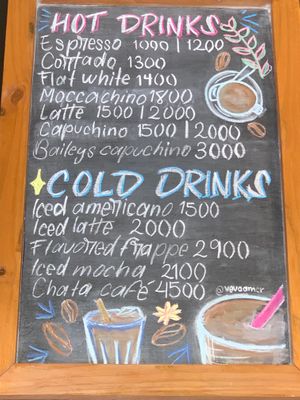 HOT DRINKS
Espresso 1000 | 1200
Cortado 1300
Flat white 1400
Moccachino 1800
Latte 1500 | 2000
Capuchino 1500 | 2000
Baileys capuchino 3000
COLD DRINKS
Iced americano 1500
Iced latte 2000
Flavored frappe 2900
Iced mocha 2100
Chata café 4500